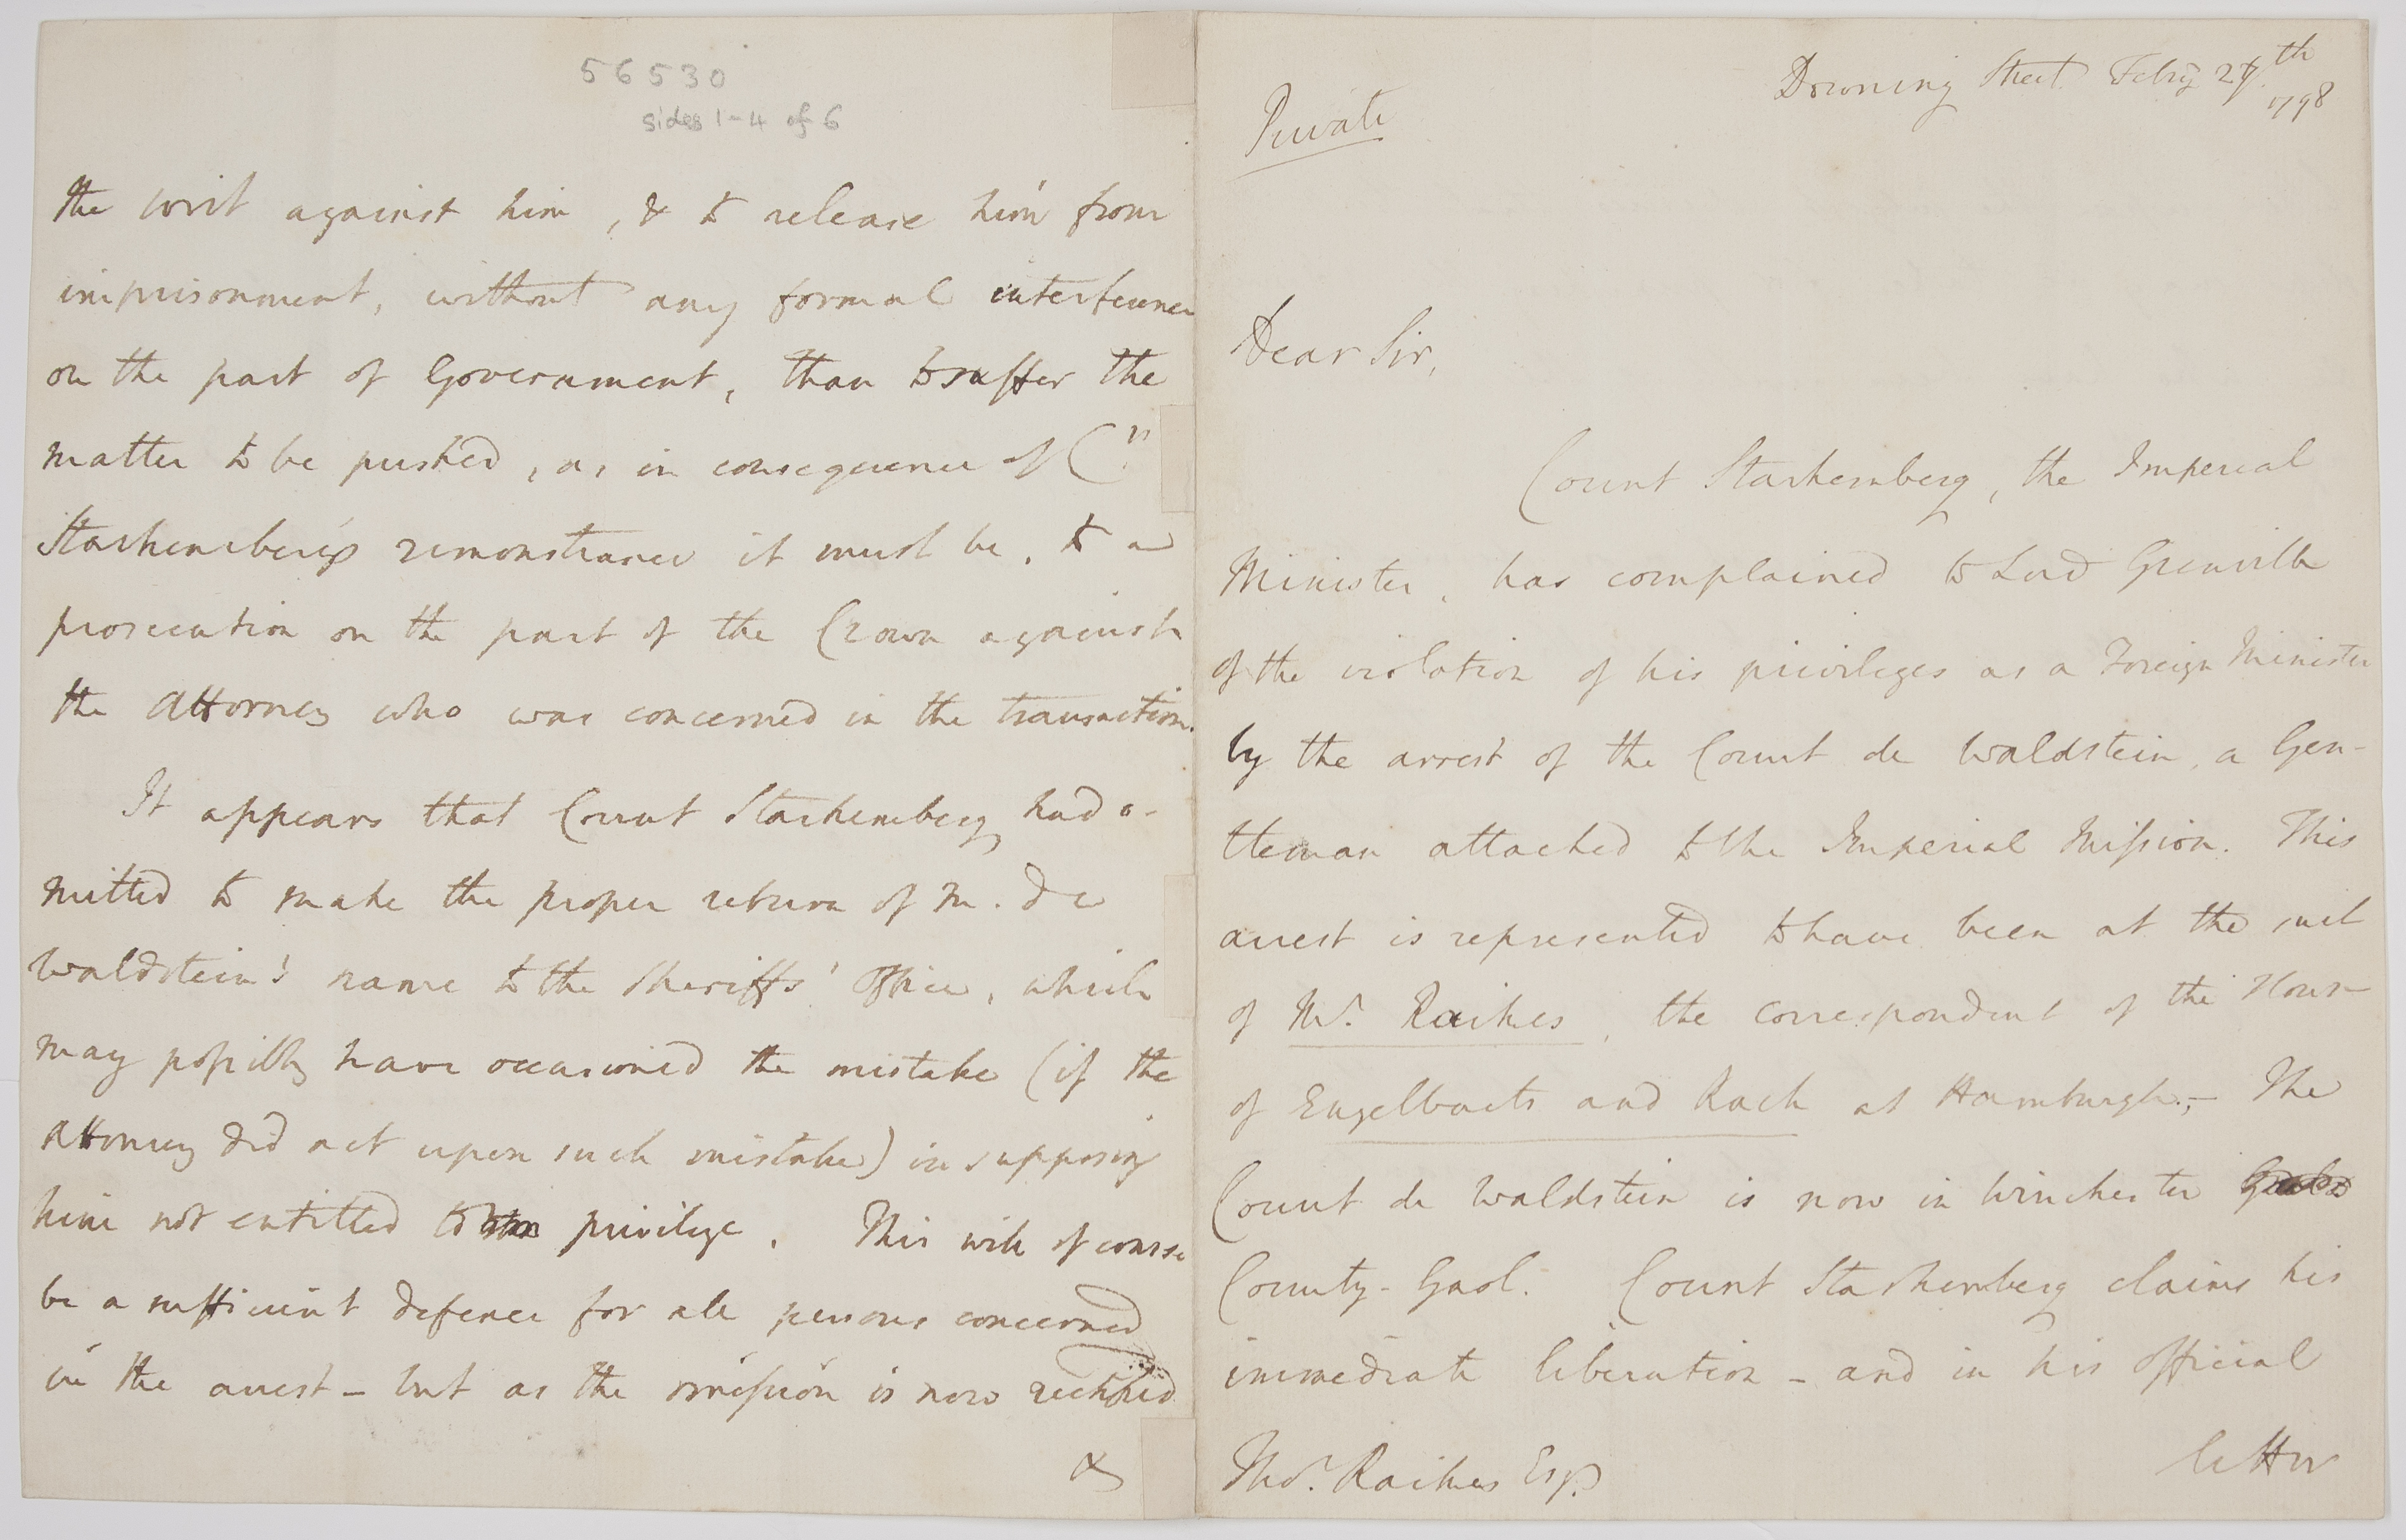 56530
sides 1-4 of 6
the writ against him, & to release him from
imprisonment, without any formal interference
on the part of Government, than to suffer the
matter to be pushed, as in consequence of Ct.
Starhemberg's remonstrance it must be, to a
prosecution on the part of the Crown against
the Attorney who was concerned in the transaction.
It appears that Count Starhemberg had o-
mitted to make the proper return of M. de
Waldstein's name to the Sheriffs' Office, which
may possibly have occasioned the mistake (if the
Attorney did act upon such mistake) in supposing
him not entitled to privilege. This will of course
be a sufficient defence for all persons concerned
in the arrest - but as the omission is now rectified
&
Private
Downing Street Febry 27th
1798
Dear Sir,
Count Starhemberg, the Imperial
Minister, has complained to Lord Grenville
of the violation of his privileges as a Foreign Minister
by the arrest of the Count de Waldstein, a Gen-
tleman attached to the Imperial Mission. This
arrest is represented to have been at the suit
of Mr. Raikes, the correspondent of the House
of Engelbacts and Rach at Hamburgh. - The
Count de Waldstein is now in Winchester
County-Gaol. Count Starhemberg claims his
immediate liberation - and in his official
Thos. Raikes Esqr.
letter